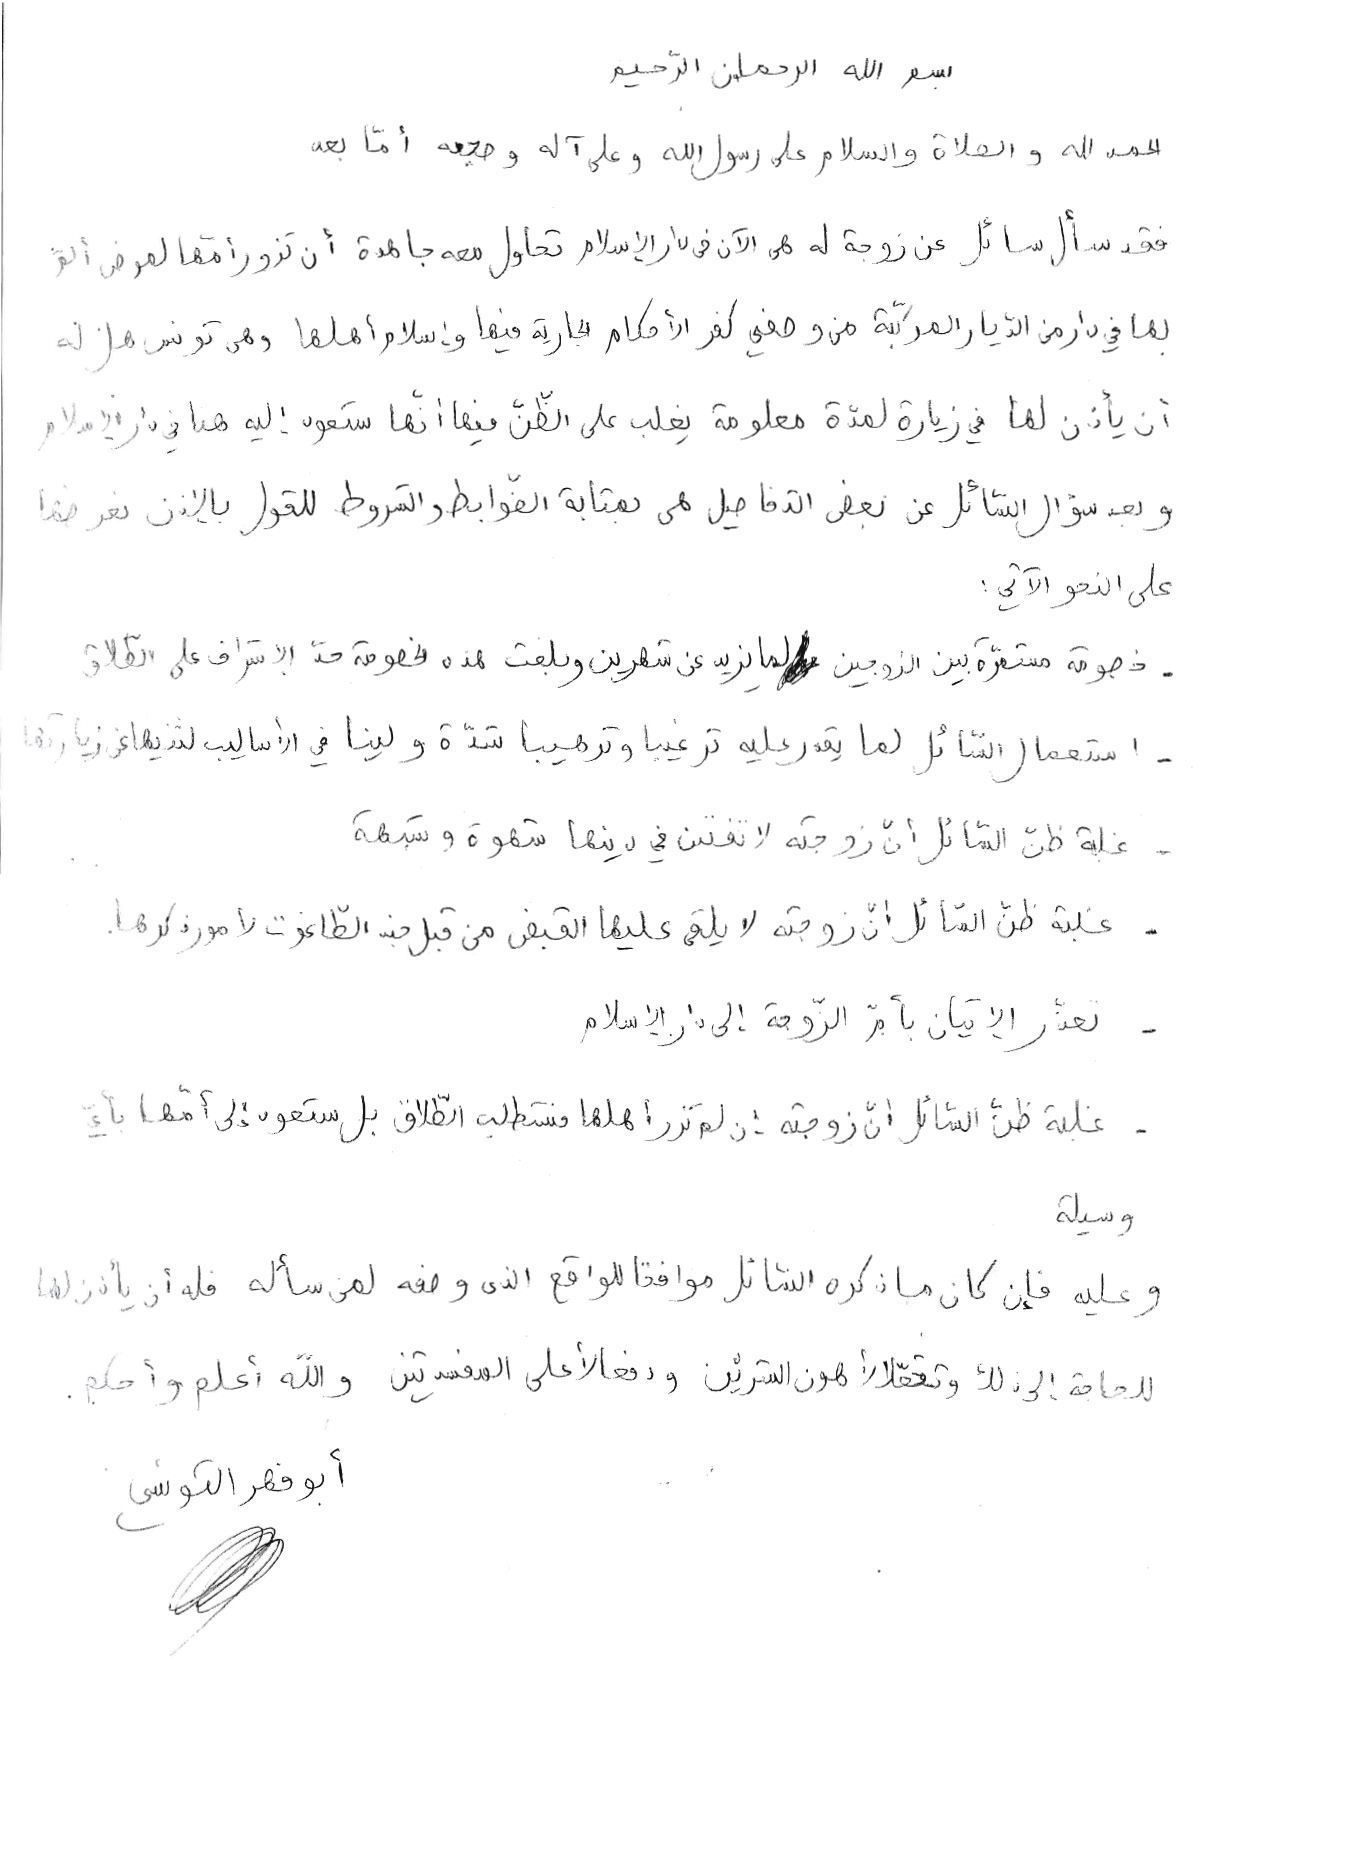 بسم الله الرحمان الرّحيم
الحمد لله و الصلاة والسلام على رسول الله وعلى آله وصحبه أمّا بعد
فقد سأل سائل عن زوجة له هي الآن في دار الإسلام تحاول معه جاهدة أن تزور أمّها لمرض ألمّ
بها في دار من الدّيار المركّبة من وصفي كفر الأحكام الجارية فيها وإسلام أهلها وهي تونس هل له
أن يأذن لها في زيارة لمدّة معلومة يغلب على الظّنّ فيها أنّها ستعود إليه هنا في دار الإسلام
وبعد سؤال السّائل عن بعض التفاصيل هي بمثابة الضّوابط والشروط للقول بالإذن نعرضها
على النحو الآتي :
- خصومة مستمرّة بين الزوجين لما يزيد عن شهرين وبلغت هذه الخصومة حدّ الإشراف على الطّلاق
- استعمال السّائل لما يقدر عليه ترغيبا وترهيبا شدّة ولينا في الأساليب لثنيها عن زيارتها
- غلبة ظنّ السّائل أنّ زوجته لا تفتتن في دينها شهوة وشبهة
- غلبة ظنّ السّائل أنّ زوجته لا يلقى عليها القبض من قبل جند الطّاغوت لأمور ذكرها.
- تعذّر الإتيان بأمّ الزّوجة إلى دار الإسلام
- غلبة ظنّ السّائل أنّ زوجته إن لم تزر أهلها فستطلب الطّلاق بل ستعود إلى أمّها بأيّ
وسيلة
وعليه فإن كان ما ذكره السّائل موافقا للواقع الذي وصفه لمن سأله فله أن يأذن لها
للحاجة إلى ذلك وتحمّلا لأهون الشرّين ودفعا لأعلى المفسدتين والله أعلم وأحكم.
أبو فهر التونسي